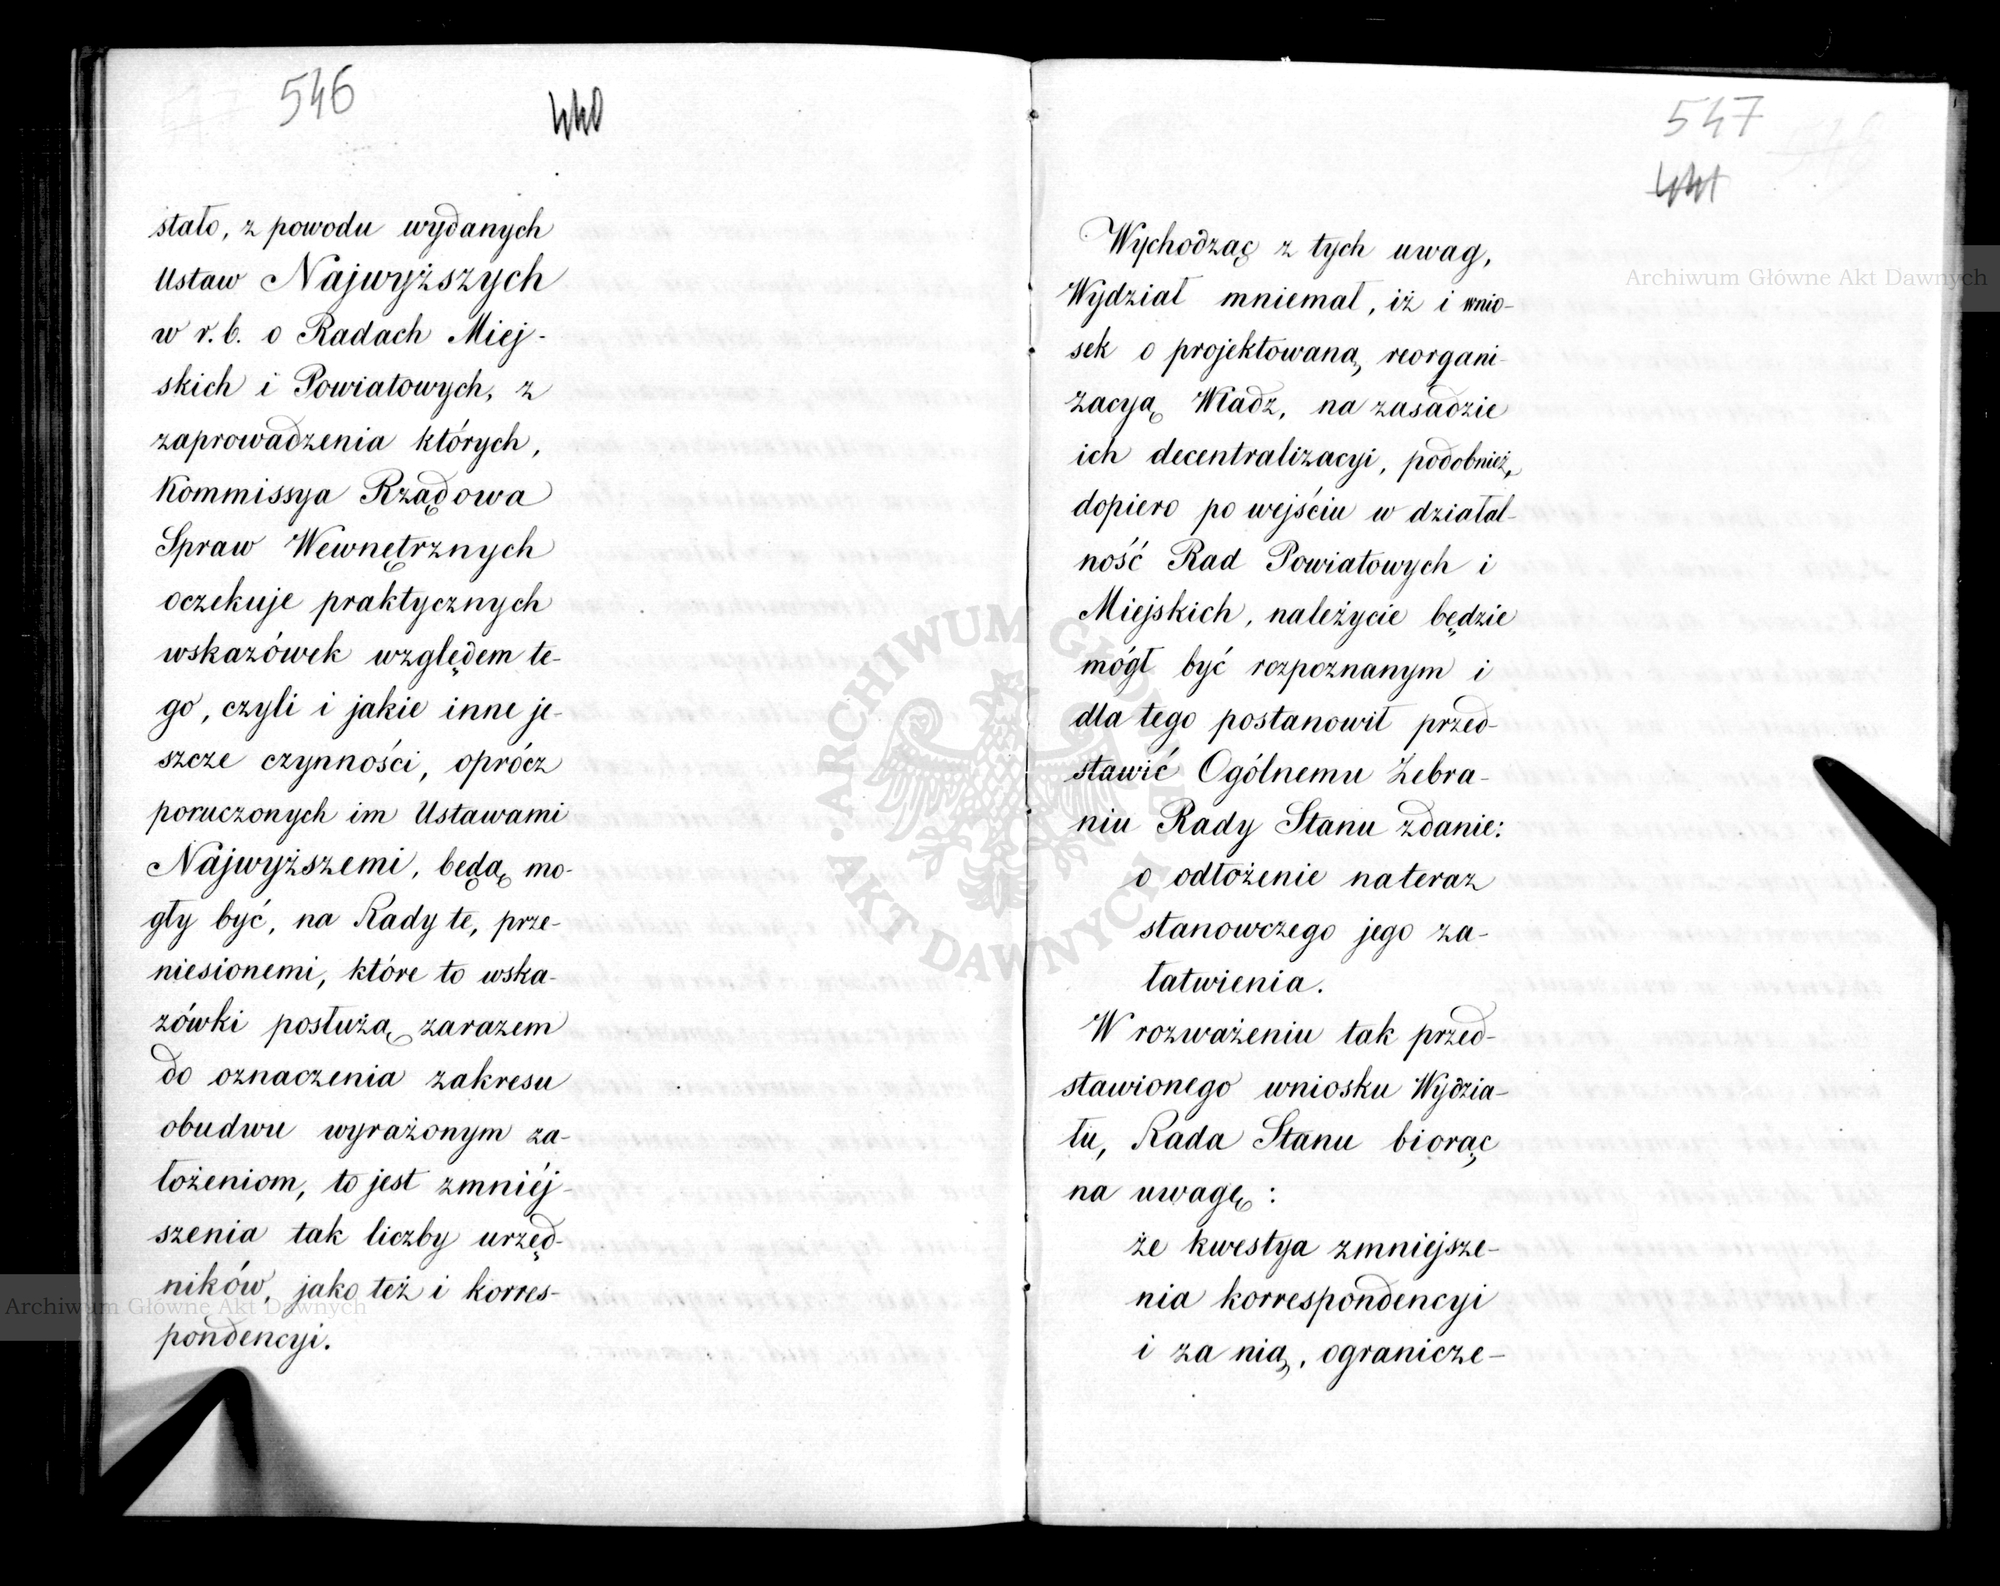 546
440
stało, z powodu wydanych
Ustaw Najwyższych
w r. b. o Radach Miej-
skich i Powiatowych, z
zaprowadzenia których,
Kommissya Rządowa
Spraw Wewnętrznych
oczekuje praktycznych
wskazówek względem te-
go, czyli i jakie inne je-
szcze czynności, oprócz
poruczonych im Ustawami
Najwyższemi, będą mo-
gły być, na Rady te, prze-
niesionemi, które to wska-
zówki posłużą zarazem
do oznaczenia zakresu
obudwu wyrażonym za-
łożeniom, to jest zmniéj-
szenia tak liczby urzęd-
ników, jako też i korres-
pondencyi.
547
441
Wychodząc z tych uwag,
Wydział mniemał, iż i wnio-
sek o projektowaną reorgani-
zacyą Władz, na zasadzie
ich decentralizacyi, podobnież,
dopiero po wejściu w działal-
ność Rad Powiatowych i
Miejskich, należycie będzie
mógł być rozpoznanym i
dla tego postanowił przed-
stawić Ogólnemu Zebra-
niu Rady Stanu zdanie:
o odłożenie nateraz
stanowczego jego za-
łatwienia.
W rozważeniu tak przed-
stawionego wniosku Wydzia-
łu, Rada Stanu biorąc
na uwagę:
że kwestya zmniejsze-
nia korrespondencyi
i za nią, ogranicze-
Archiwum Główne Akt Dawnych
Archiwum Główne Akt Dawnych
ARCHIWUM GŁÓWNE AKT DAWNYCH